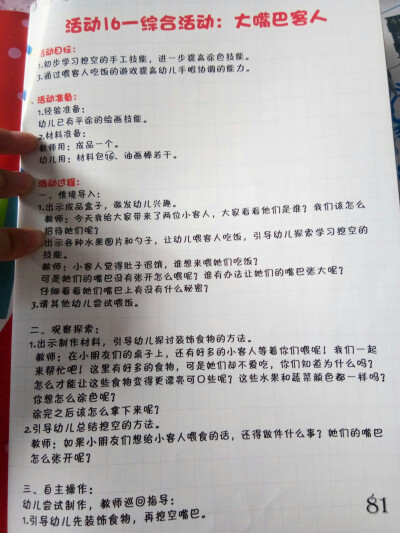 活动16—综合活动：大嘴巴客人
活动目标：
1.初步学习挖空的手工技能，进一步提高涂色技能。
3.通过喂客人吃饭的游戏提高幼儿手眼协调的能力。
活动准备：
1.经验准备：
幼儿已有平涂的绘画技能。
2.材料准备：
教师用：成品一个。
幼儿用：材料包、油画棒若干。
活动过程：
一、情境导入：
1.出示成品盒子，激发幼儿兴趣。
教师：今天我给大家带来了两位小客人，大家看看他们是谁？我们该怎么
招待她们呢？
出示各种水果图片和勺子，让幼儿喂客人吃饭，引导幼儿探索学习挖空的
技能。
教师：小客人觉得肚子很饿，谁想来喂她们吃饭？
可是她们的嘴巴没有张开怎么喂呢？谁有办法让她们的嘴巴张大呢？
仔细看看她们嘴巴上有没有什么秘密？
3.请其他幼儿尝试喂饭。
二、观察探索：
1.出示制作材料，引导幼儿探讨装饰食物的方法。
教师：在小朋友们的桌子上，还有好多的小客人等着你们喂呢！我们一起
来帮忙吧！这里有好多的食物，可是她们却不爱吃，你们知道为什么吗？
怎么才能让这些食物变得更漂亮可口些呢？这些水果和蔬菜颜色都一样吗？
你想怎么涂色呢？
涂完之后该怎么拿下来呢？
2.引导幼儿总结挖空的方法。
教师：如果小朋友们想给小客人喂食的话，还得做件什么事？她们的嘴巴
怎么张开呢？
三、自主操作：
幼儿尝试制作，教师巡回指导：
1.引导幼儿先装饰食物，再挖空嘴巴。
81